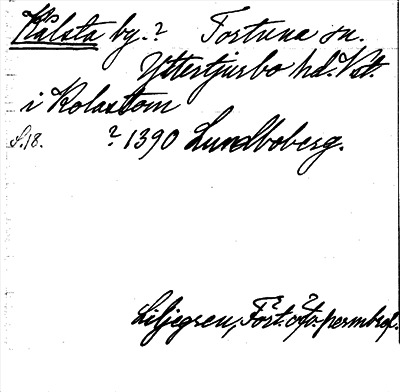 Kalsta by.? Fortuna sn.
Yttertjurbo hd. Vst.
i Kolastom
S.18. ? 1390 Lundboberg.
Liljegren, Fört. ö. permbref.